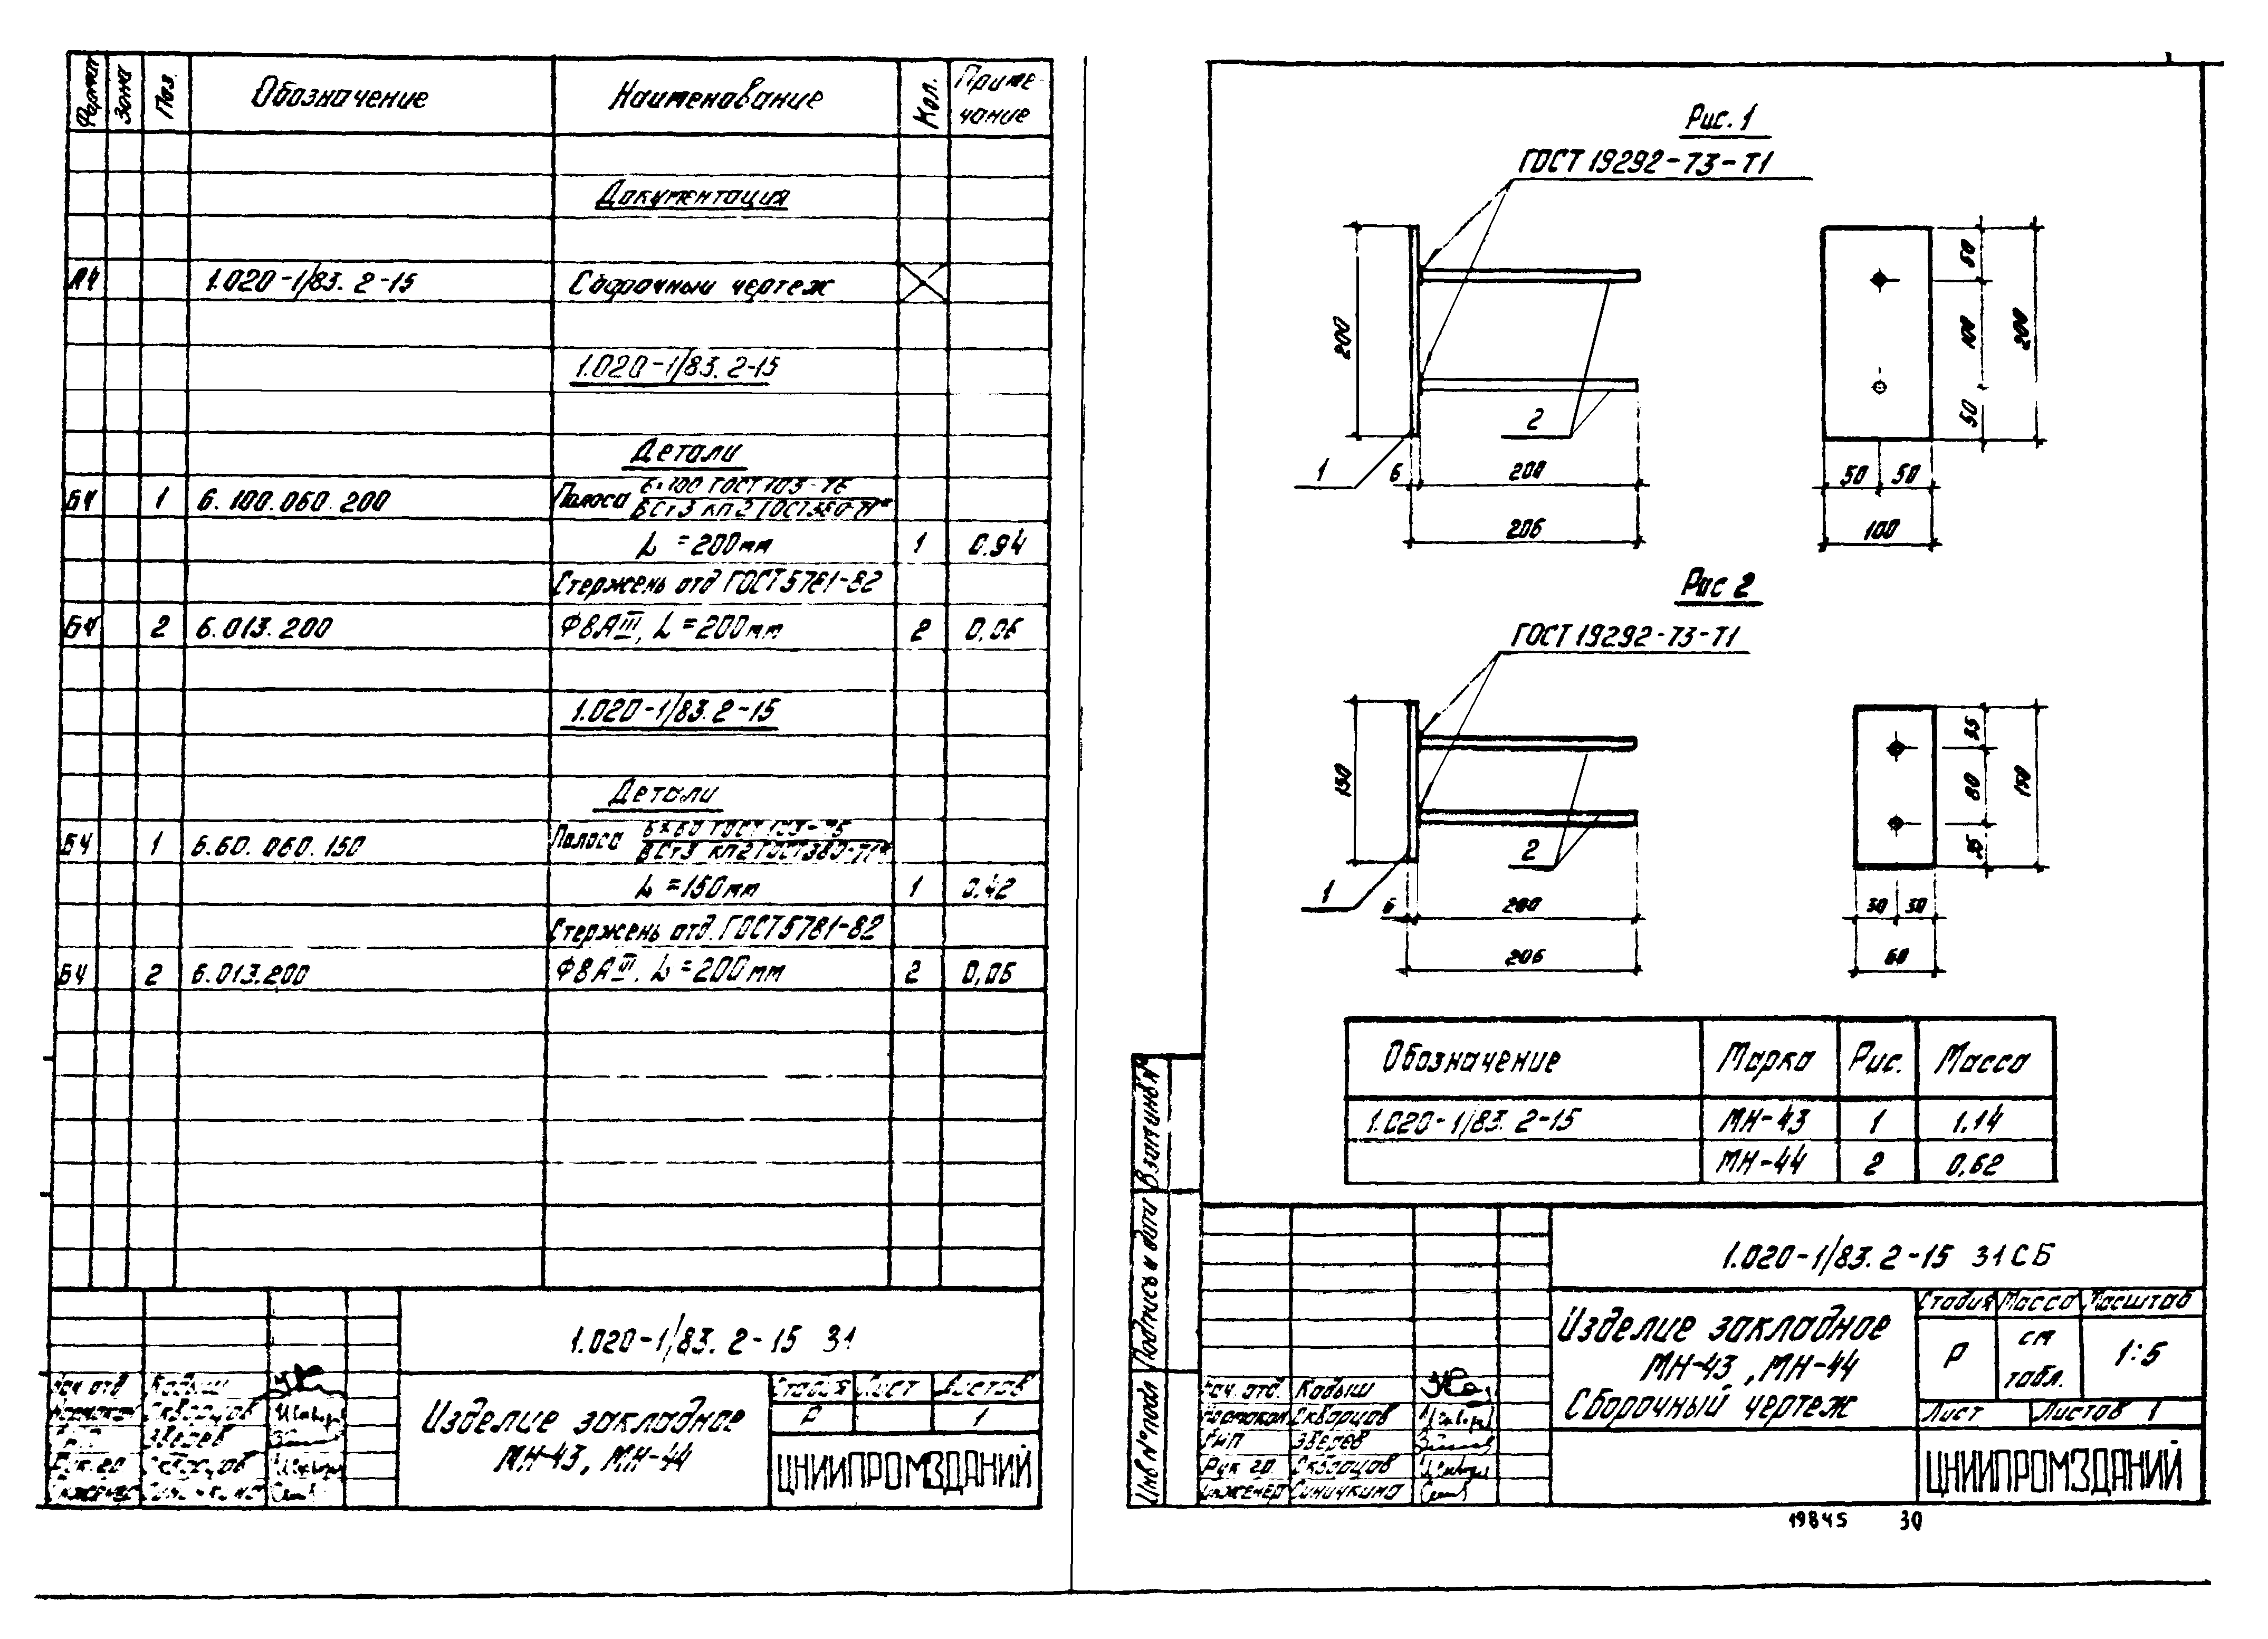 Формат Зона Поз. Обозначение Наименование Кол. Приме-
чание
Документация
А4 1.020-1/83. 2-15 Сборочный чертеж
1.020-1/83. 2-15
Детали
БЧ 1 6. 100. 060. 200 Полоса 6×100 ГОСТ 103-76
ВСт3 кп2 ГОСТ380-71*
L = 200мм 1 0.94
Стержень отд ГОСТ5781-82
БЧ 2 6.013.200 Ф8АIII, L = 200мм 2 0,06
1.020-1/83. 2-15
Детали
БЧ 1 6.60. 060. 150 Полоса 6×60 ГОСТ 103-76
ВСт3 кп2 ГОСТ380-71*
L = 150мм 1 0.42
Стержень отд. ГОСТ5781-82
БЧ 2 6.013.200 Ф8АIII, L = 200мм 2 0,06
1.020-1/83. 2-15 31
Нач. отд Кодыш
Скворцов
Зверев
Рук. гр. Скворцов
Изделие закладное
МН-43, МН-44
Стадия Лист Листов
Р 1
ЦНИИПРОМЗДАНИЙ
Рис. 1
ГОСТ 19292-73-Т1
200
2
1
6 200
206
50
100
50
200
50 50
100
Рис 2
ГОСТ 19292-73-Т1
150
2
1
6 200
206
35
80
35
150
30 30
60
Обозначение Марка Рис. Масса
1.020-1/83. 2-15 МН-43 1 1.14
МН-44 2 0,62
Взам инв №
Подпись и дата
Инв № подл
1.020-1/83. 2-15 31СБ
Нач. отд. Кодыш
Нормокон Скворцов
ГИП Зверев
Рук гр. Скворцов
Инженер Синичкина
Изделие закладное
МН-43, МН-44
Сборочный чертеж
Стадия Масса Масштаб
Р см
табл. 1:5
Лист Листов 1
ЦНИИПРОМЗДАНИЙ
19845 30